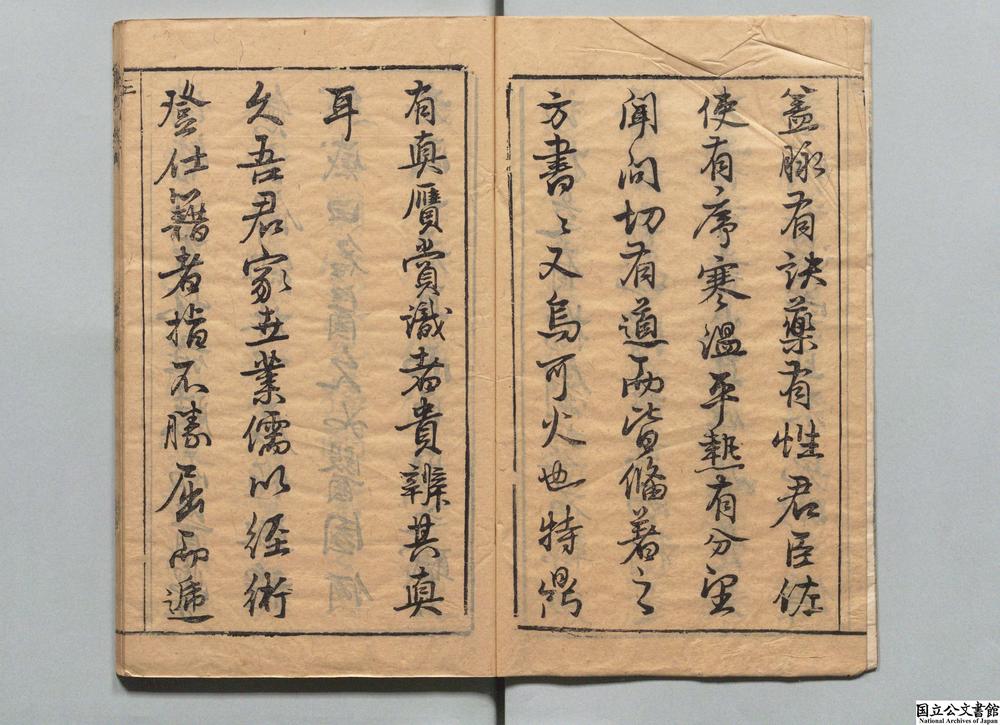 蓋脉有訣藥有性君臣佐
使有〻序寒〻溫平熱有分望
聞问切有道而皆俻著之
方書〻又烏可火也特鼎
有真贋賞識者貴辨其真
耳
久吾君家世業儒以經術
登仕籍者指不勝屈而遞
三
国立公文書館
National Archives of Japan